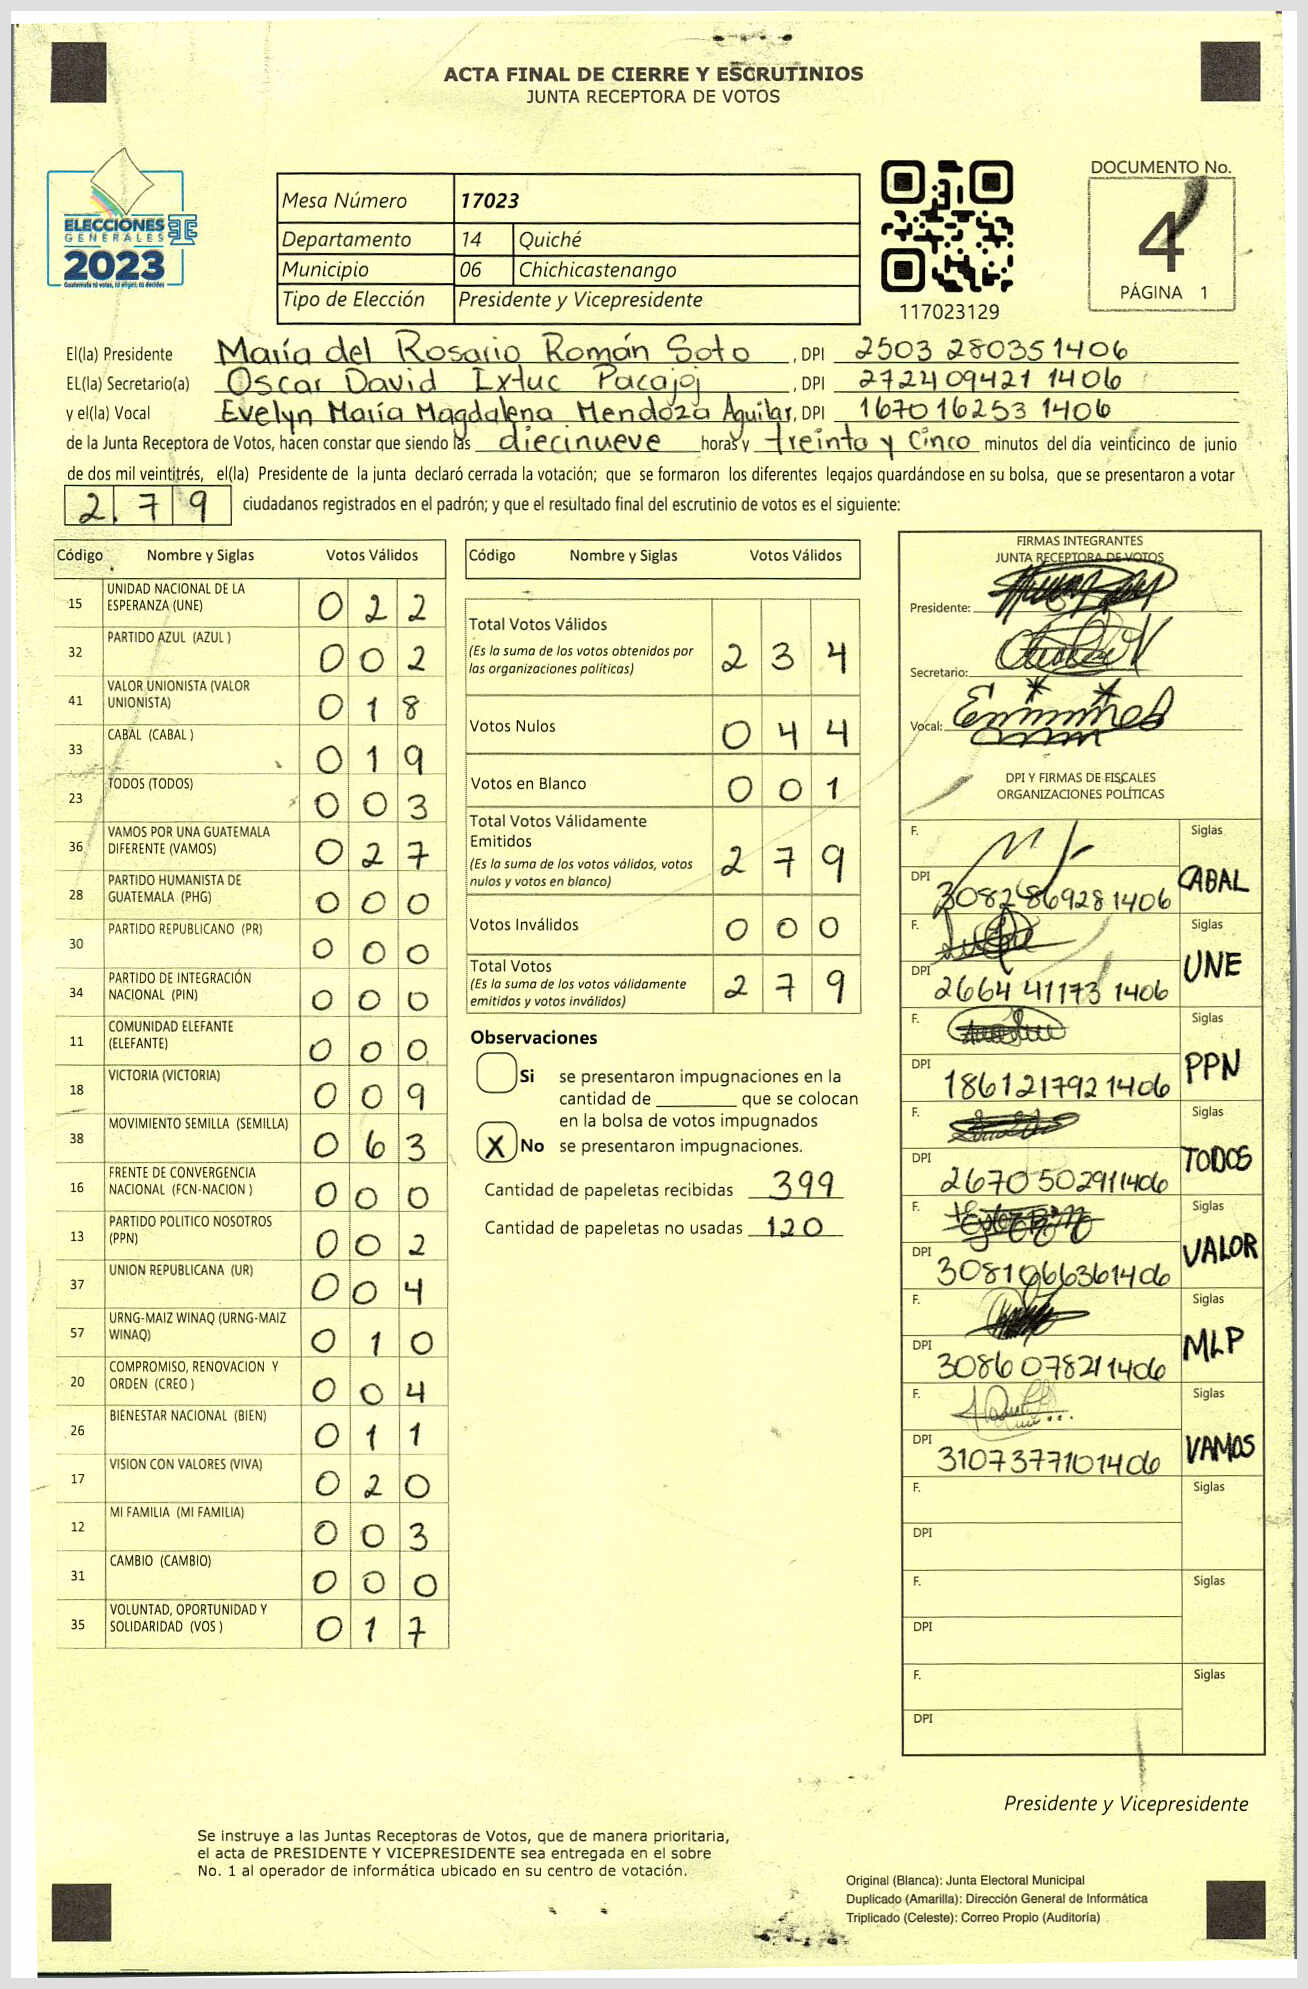 ACTA FINAL DE CIERRE Y ESCRUTINIOS
JUNTA RECEPTORA DE VOTOS
ELECCIONES
GENERALES
2023
Guatemala tú votas, tú eliges, tú decides
Mesa Número 17023
Departamento 14 Quiché
Municipio 06 Chichicastenango
Tipo de Elección Presidente y Vicepresidente
117023129
DOCUMENTO No.
4
PÁGINA 1
El(la) Presidente María del Rosario Román Soto, DPI 2503 28035 1406
EL(la) Secretario(a) Oscar David Ixtuc Pacajoj, DPI 2724 09421 1406
y el(la) Vocal Evelyn María Magdalena Mendoza Aguilar, DPI 1670 16253 1406
de la Junta Receptora de Votos, hacen constar que siendo las diecinueve horas y treinta y cinco minutos del día veinticinco de junio
de dos mil veintitrés, el(la) Presidente de la junta declaró cerrada la votación; que se formaron los diferentes legajos guardándose en su bolsa, que se presentaron a votar
2 7 9 ciudadanos registrados en el padrón; y que el resultado final del escrutinio de votos es el siguiente:
Código Nombre y Siglas Votos Válidos
15 UNIDAD NACIONAL DE LA ESPERANZA (UNE) 0 2 2
32 PARTIDO AZUL (AZUL ) 0 0 2
41 VALOR UNIONISTA (VALOR UNIONISTA) 0 1 8
33 CABAL (CABAL ) 0 1 9
23 TODOS (TODOS) 0 0 3
36 VAMOS POR UNA GUATEMALA DIFERENTE (VAMOS) 0 2 7
28 PARTIDO HUMANISTA DE GUATEMALA (PHG) 0 0 0
30 PARTIDO REPUBLICANO (PR) 0 0 0
34 PARTIDO DE INTEGRACIÓN NACIONAL (PIN) 0 0 0
11 COMUNIDAD ELEFANTE (ELEFANTE) 0 0 0
18 VICTORIA (VICTORIA) 0 0 9
38 MOVIMIENTO SEMILLA (SEMILLA) 0 6 3
16 FRENTE DE CONVERGENCIA NACIONAL (FCN-NACION ) 0 0 0
13 PARTIDO POLITICO NOSOTROS (PPN) 0 0 2
37 UNION REPUBLICANA (UR) 0 0 4
57 URNG-MAIZ WINAQ (URNG-MAIZ WINAQ) 0 1 0
20 COMPROMISO, RENOVACION Y ORDEN (CREO ) 0 0 4
26 BIENESTAR NACIONAL (BIEN) 0 1 1
17 VISION CON VALORES (VIVA) 0 2 0
12 MI FAMILIA (MI FAMILIA) 0 0 3
31 CAMBIO (CAMBIO) 0 0 0
35 VOLUNTAD, OPORTUNIDAD Y SOLIDARIDAD (VOS ) 0 1 7
Código Nombre y Siglas Votos Válidos
Total Votos Válidos 2 3 4
(Es la suma de los votos obtenidos por
las organizaciones políticas)
Votos Nulos 0 4 4
Votos en Blanco 0 0 1
Total Votos Válidamente
Emitidos 2 7 9
(Es la suma de los votos válidos, votos
nulos y votos en blanco)
Votos Inválidos 0 0 0
Total Votos 2 7 9
(Es la suma de los votos válidamente
emitidos y votos inválidos)
Observaciones
Si se presentaron impugnaciones en la
cantidad de ________ que se colocan
en la bolsa de votos impugnados
X No se presentaron impugnaciones.
Cantidad de papeletas recibidas 399
Cantidad de papeletas no usadas 120
FIRMAS INTEGRANTES
JUNTA RECEPTORA DE VOTOS
Presidente:
Secretario:
Vocal:
DPI Y FIRMAS DE FISCALES
ORGANIZACIONES POLÍTICAS
F. Siglas
DPI 3082869281406 CABAL
F. Siglas
DPI 2664 41173 1406 UNE
F. Siglas
DPI 1861217921406 PPN
F. Siglas
DPI 2670502911406 TODOS
F. Siglas
DPI 3081066361406 VALOR
F. Siglas
DPI 3086078211406 MLP
F. Siglas
DPI 3107377101406 VAMOS
F. Siglas
DPI
F. Siglas
DPI
F. Siglas
DPI
Presidente y Vicepresidente
Se instruye a las Juntas Receptoras de Votos, que de manera prioritaria,
el acta de PRESIDENTE Y VICEPRESIDENTE sea entregada en el sobre
No. 1 al operador de informática ubicado en su centro de votación.
Original (Blanca): Junta Electoral Municipal
Duplicado (Amarilla): Dirección General de Informática
Triplicado (Celeste): Correo Propio (Auditoría)